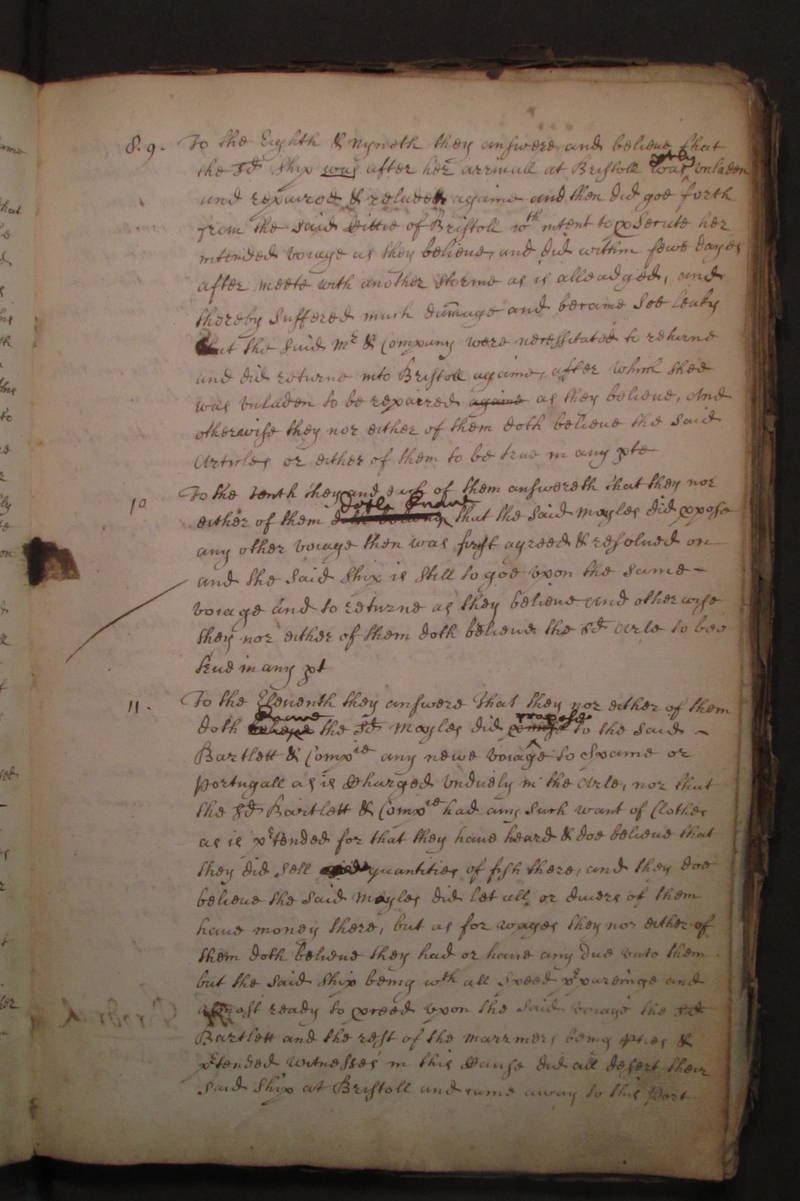 8. 9. To the Eighth & Nyneth they answere and believe that
the sd ship was after her arrivall at Bristoll was only vnladen
and repaired & reladen againe and then did goe forth
from the said Cittie of Bristoll wth intent to prosecute her
intended voiage as they believe, and did within fewe dayes
after meete with another Storme as is alleadged, and
thereby suffered much dammage and became soe leaky
that the said Mr & Company were necessitated to returne
and did returne into Bristoll againe, after which shee
was vnladen to be repaired againe as they believe, And
otherwise they nor either of them doth believe the said
Articles or either of them to be true in any pte
10 To the tenth they and each of them answereth that they nor
either of them doth knowe that the said Moyles did ppose
any other voiage then was first agreed & resolued on
and the said ship is still to goe vpon the same -
voiage and to returne as they believe and otherwise
they nor either of them doth believe the sd Arle to bee
true in any pt
11. To the Eleventh they answere that they nor either of them
doth believe knowe the sd Moyles did propose to the said -
Bartlett & Compie any newe voiage to Spaine or
Portugall as is charged vnduely in the Arle, nor that
the sd Bartlett & Compie had any such want of Clothes
as is prtended for that they haue heard & doe believe that
they did sell quantities of fish there, and they doe
believe the said Moyles did let all or divers of them
haue money there, but as for wages they nor either of
them doth believe they had or haue any due vnto them
but the said ship being wth all speed prpareinge and
almost ready to pceed vpon the said voiage the sd
Bartlett and the rest of the marriners being pties &
prtended witnesses in this Cause did all desert their
said ship at Bristoll and came away to this Port